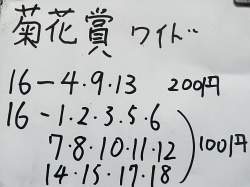 菊花賞 ワイド
16-4・9・13 200円
16-1・2・3・5・6
7・8・10・11・12 100円
14・15・17・18